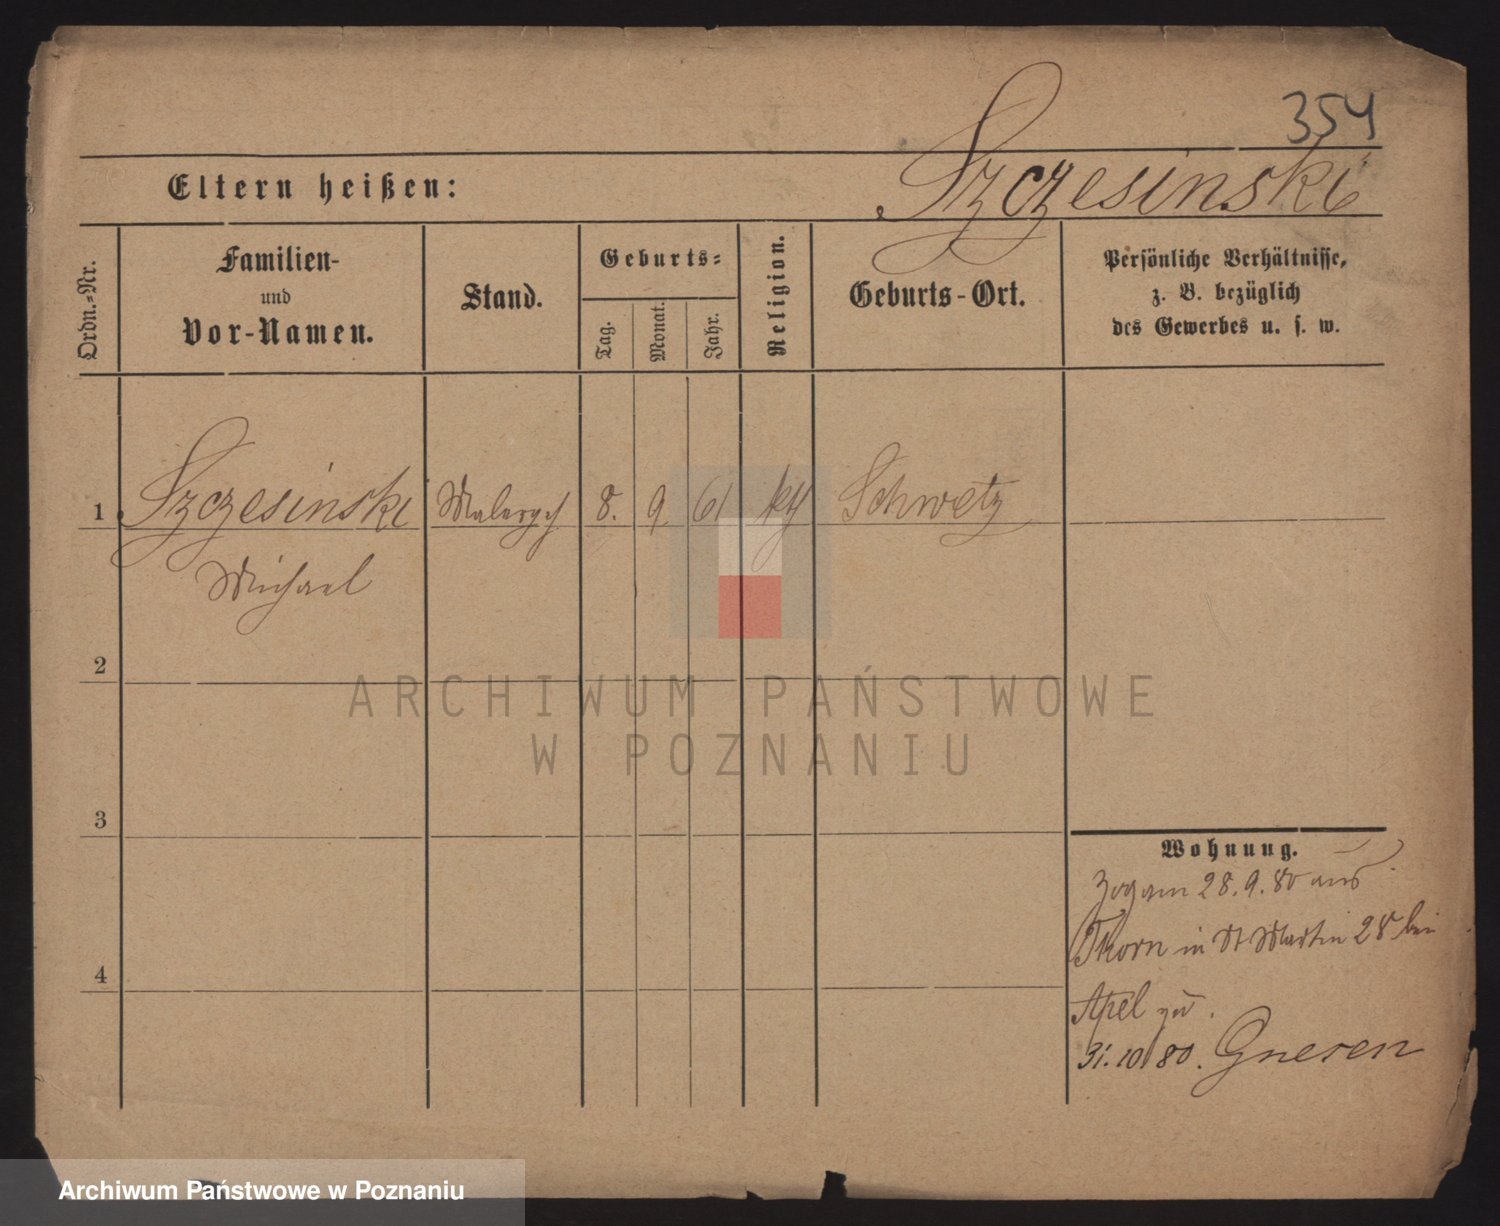 354
Eltern heißen:
Szczesinski
Ordn.-Nr.
Familien-
und
Vor-Namen.
Stand.
Geburts-
Tag.
Monat.
Jahr.
Religion.
Geburts-Ort.
Persönliche Verhältnisse,
z. B. bezüglich
des Gewerbes u. s. w.
1 Szczesinski Malergh 8. 9 61 kth Schwetz
Michael
2
3
4
Wohnung.
Zog am 28.9.80 aus
Thorn in St Martin 28 bei
Apel zu.
31.10 80. Gnesen
ARCHIWUM PAŃSTWOWE
W POZNANIU
Archiwum Państwowe w Poznaniu